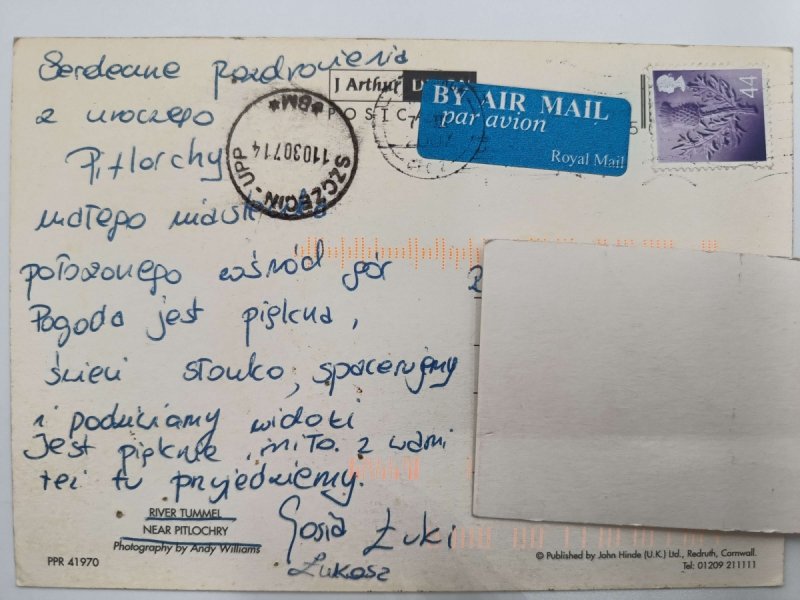 Serdeczne pozdrowienia
z uroczego
Pitlorchy
małego miasteczka
położonego wśród gór
Pogoda jest piękna,
świeci słonko, spacerujemy
i podziwiamy widoki
Jest pięknie, miło. z wami
też tu przyjedziemy.
Gosia Łuki
Łukasz
J Arthur
BY AIR MAIL
par avion
Royal Mail
44
SZCZECIN - UPP
11030714
*BM*
RIVER TUMMEL
NEAR PITLOCHRY
Photography by Andy Williams
PPR 41970
© Published by John Hinde (U.K.) Ltd., Redruth, Cornwall.
Tel: 01209 211111